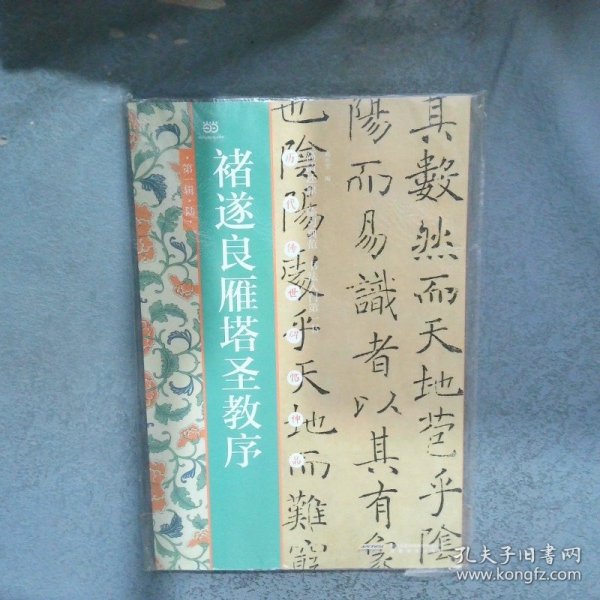 其數然而天地苞乎陰
陽而易識者以其有象
也陰陽處乎天地而難窮
历代传世碑帖神品
褚遂良雁塔圣教序
·第一辑·陆·
孔夫子旧书网
www.kongfz.com